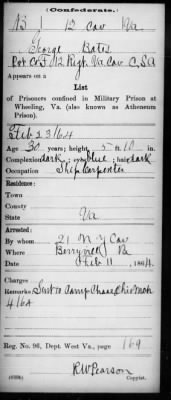 (Confederate.)
B | 12 Cav | Va
George Bates
Pvt Co B 12 Regt Va Cav C.S.A
Appears on a
List
of Prisoners confined in Military Prison at
Wheeling, Va. (also known as Atheneum
Prison).
Feb 23 1864
Age 30 years; height, 5 ft 10 in.
Complexion dark; eyes blue; hair dark
Occupation Ship Carpenter
Residence:
Town
County
State Va
Arrested:
By whom 21 N Y Cav
Where Berryville Va
When Feb 11, 1864
Charges
Remarks Sent to Camp Chase Ohio Mch
4 1864
Reg. No. 96, Dept. West Va., page 169
R W Pearson
Copyist.